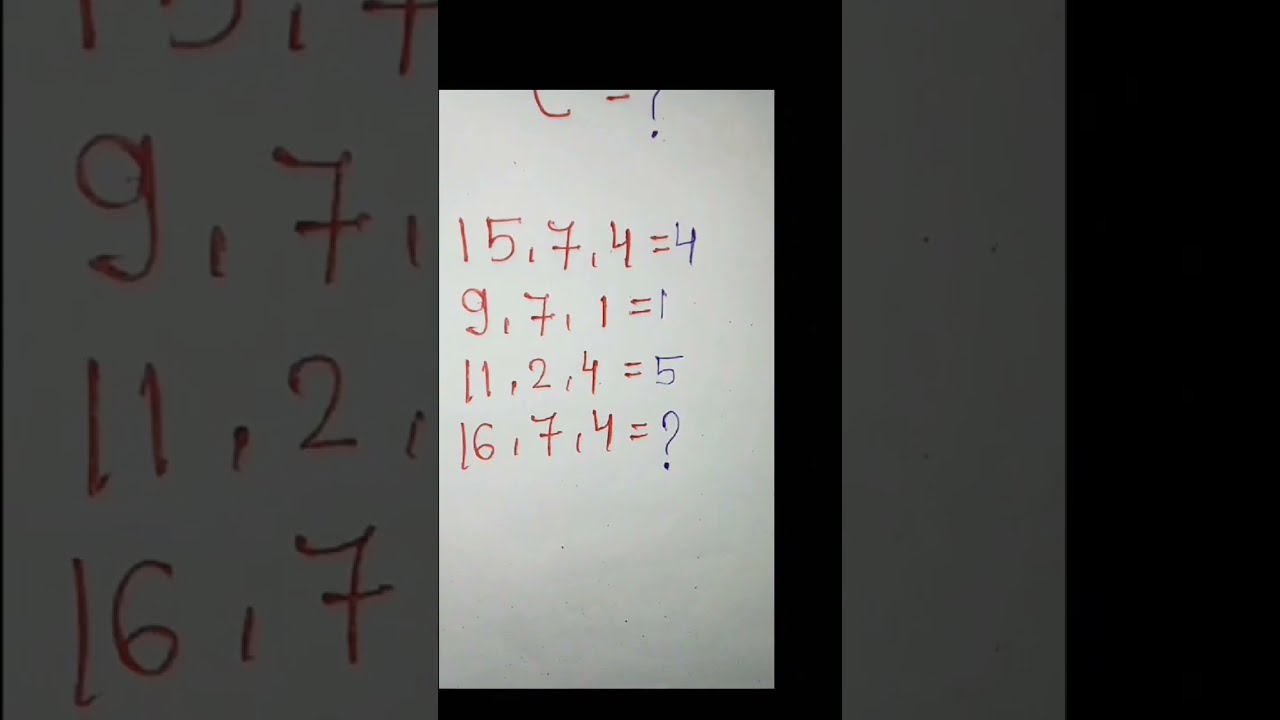 15,7,4=4
9,7,1=1
11,2,4=5
16,7,4=?